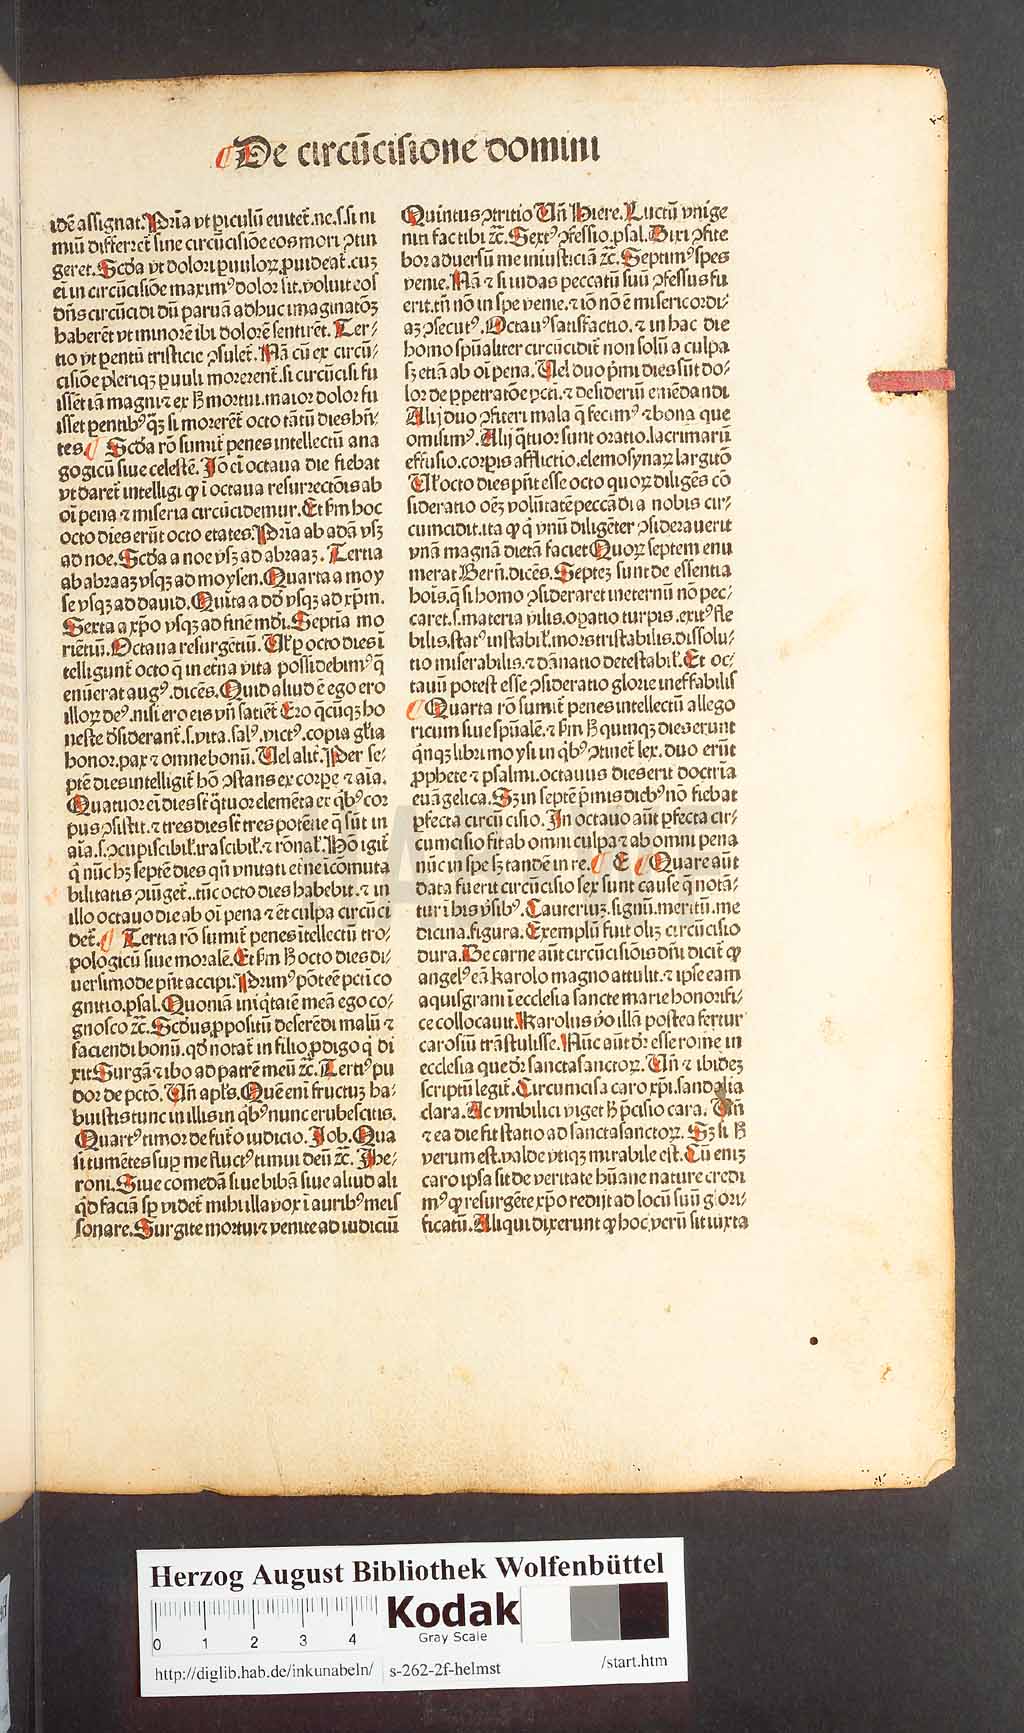 De circūcisione domini
idē assignat. Pria vt piculū euitet. ne. s. si ni
miū differret sine circūcisiōe eos mori ꝯtin
geret. Scda vt dolori puuloꝝ ꝓuideat. cuꝫ
ei in circūcisiōe maximꝰ dolor sit. voluit eos
dn̄s circūcidi dū parua adhuc imaginatōꝫ
haberēt vt minorē ibi dolorē sentirēt. Ter-
tio vt pentū tristicie ꝯsulet. Nā cū ex circū-
cisiōe pleriqꝫ puuli morerent. si circūcisi fu
issēt iā magni ⁊ ex ħ mortui. maior dolor fu
isset pentibꝰ qꝫ si morerēt octo tātū dies hn̄-
tes. Scda rō sumit penes intellectū ana
gogicū siue celestē. Io ei octaua die fiebat
vt daret intelligi ꝙ ī octaua resurrectōis ab
oī pena ⁊ miseria circūcidemur. Et ẜm hoc
octo dies erūt octo etates. Pria ab adā vsꝫ
ad noe. Scda a noe vsꝫ ad abraaꝫ. Tertia
ab abraaꝫ vsqꝫ ad moysen. Quarta a moy
se vsqꝫ ad dauid. Quīta a dd̄ vsqꝫ ad xp̄m.
Sexta a xp̄o vsqꝫ ad finē mdi. Septīa mo
riētiū. Octaua resurgētiū. Uꝉ p octo dies ī
telligunt octo q̄ in etna vita possidebimꝰ q̄
enūerat augꝰ. dicēs. Quid aliud ē ego ero
illoꝝ deꝰ. nisi ero eis vn̄ satient. Ero qcūqꝫ ho
neste desiderant. s. vita. salꝰ. victꝰ. copia glia
honor. pax ⁊ omne bonū. Uel alit. Per se-
ptē dies intelligit hō ꝯstans ex corpe ⁊ aīa.
Quatuor ei dies st q̄tuor elemēta ex qbꝰ cor
pus ꝯsistit. ⁊ tres dies st tres potētie q̄ sūt in
aīa. s. ꝯcupiscibiꝉ. irascibiꝉ. ⁊ rōnaꝉ. Hō igit
q̄ nūc hꝫ septē dies qn̄ vnitati etne īcōmuta
bilitatis ꝯiūget. tūc octo dies habebit. ⁊ in
illo octauo die ab oī pena ⁊ ēt culpa circūci
det. Tertia rō sumit penes ītellectū tro-
pologicū siue morale. Et ẜm ħ octo dies di-
uersimode pn̄t accipi. Primꝰ pōt eē pcti co
gnitio. psal. Quoniā iniqtatē meā ego co-
gnosco ⁊c. Scdus ꝓpositū deserēdi malū ⁊
faciendi bonū. qd notat in filio ꝓdigo q̄ di
xit Surgā ⁊ ibo ad patrē meū ⁊c. Tertiꝰ pu
dor de pctō. Un̄ apls. Quē eni fructuꝫ ha-
buistis tunc in illis in qbꝰ nunc erubescitis.
Quartꝰ timor de futo iudicio. Job. Qua
si tumētes sup me fluctꝰ timui deū ⁊c. Jhe-
roni. Siue comedā siue bibā siue aliud ali
qd faciā sp videt mihi illa vox ī auribꝰ meis
sonare. Surgite mortui ⁊ venite ad iudiciū
Quintus ꝯtritio Un̄ Hiere. Luctū vnige
niti fac tibi ⁊c. Sextꝰ ꝯfessio. psal. Dixi ꝯfite
bor aduersū me iniusticiā ⁊c. Septimꝰ spes
venie. Nā ⁊ si iudas peccatū suū ꝯfessus fu
erit. tn̄ nō in spe venie. ⁊ iō nō ē misericordi-
aꝫ ꝯsecutꝰ. Octauꝰ satisfactio. ⁊ in hac die
homo spūaliter circūcidit non solū a culpa
sꝫ etiā ab oī pena. Uel duo pmi dies sūt do-
lor de ppetratōe pcti. ⁊ desideriū emēdandi
Alij duo ꝯfiteri mala q̄ fecimꝰ ⁊ bona que
omisimꝰ. Alij qtuor sunt oratio. lacrimarū
effusio. corpis afflictio. elemosynaꝝ largitō
Uꝉ octo dies pn̄t esse octo quoꝝ diligēs cō
sideratio oēꝫ volūtatē peccādi a nobis cir-
cumcidit. ita ꝙ q̄ vnū diligēter ꝯsiderauerit
vnā magnā dietā faciet Quoꝝ septem enu
merat Bern̄. dicēs. Septeꝫ sunt de essentia
hois. q̄ si homo ꝯsideraret ineternū nō pec-
caret. s. materia vilis. opatio turpis. exitꝰ fle
bilis. statꝰ instabiꝉ. mors tristabilis. dissolu-
tio miserabilis. ⁊ dānatio detestabiꝉ. Et oc-
tauū potest esse ꝯsideratio glorie ineffabilis
Quarta rō sumit penes intellectū allego
ricum siue spūalē. ⁊ ẜm ħ quinqꝫ dies erunt
qnqꝫ libri moysi in qbꝰ ꝯtinet lex. duo erūt
ꝓphete ⁊ psalmi. octauus dies erit doctrīa
euāgelica. Sꝫ in septē pmis diebꝰ nō fiebat
pfecta circūcisio. In octauo aūt pfecta cir-
cumcisio fit ab omni culpa ⁊ ab omni pena
nūc in spe sꝫ tandē in re. E Quare aūt
data fuerit circūcisio sex sunt cause q̄ notā-
tur ī his v̄sibꝰ. Cauteriuꝫ. signū. meritū. me
dicina. figura. Exemplū fuit oliꝫ circūcisio
dura. De carne aūt circūcisiōis dn̄i dicit ꝙ
angelꝰ eā Karolo magno attulit. ⁊ ipse eam
aquisgrani ī ecclesia sancte marie honorifi-
ce collocauit. Karolus v̄o illā postea fertur
carosiū trāstulisse. Nūc aūt dr̄ esse rome in
ecclesia que dr̄ sancta sanctoꝝ. Un̄ ⁊ ibideꝫ
scriptū legit. Circumcisa caro xp̄i. sandalia
clara. Ac vmbilici viget ħ p̄cisio cara. Un̄
⁊ ea die fit statio ad sancta sanctoꝝ. Sꝫ si ħ
verum est. valde vtiqꝫ mirabile est. Cū eniꝫ
caro ipsa sit de veritate hūane nature credi
mꝰ ꝙ resurgēte xp̄o redijt ad locū suū glori-
ficatū. Aliqui dixerunt ꝙ hoc verū sit iuxta
Herzog August Bibliothek Wolfenbüttel
0 1 2 3 4
Kodak
Gray Scale
http://diglib.hab.de/inkunabeln/ s-262-2f-helmst /start.htm